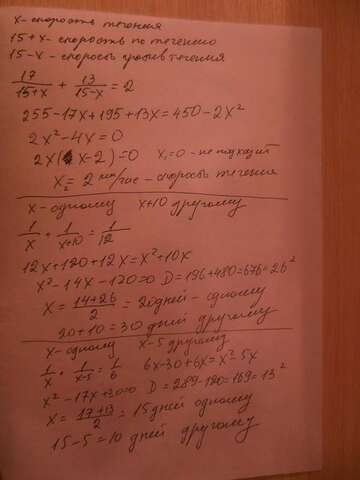 x - скорость течения
15+x - скорость по течению
15-x - скорость против течения
17/15+x + 13/15-x = 2
255-17x+195+13x=450-2x²
2x²-4x=0
2x(x-2)=0 x₁=0 - не подходит
x₂=2 км/час - скорость течения
x - одному x+10 другому
1/x + 1/x+10 = 1/12
12x+120+12x=x²+10x
x²-14x-120=0 D=196+480=676=26²
x=14+26/2=20дней - одному
20+10=30 дней другому
x - одному x-5 другому
1/x + 1/x-5 = 1/6 6x-30+6x=x²-5x
x²-17x+30=0 D=289-120=169=13²
x=17+13/2=15дней одному
15-5=10 дней другому